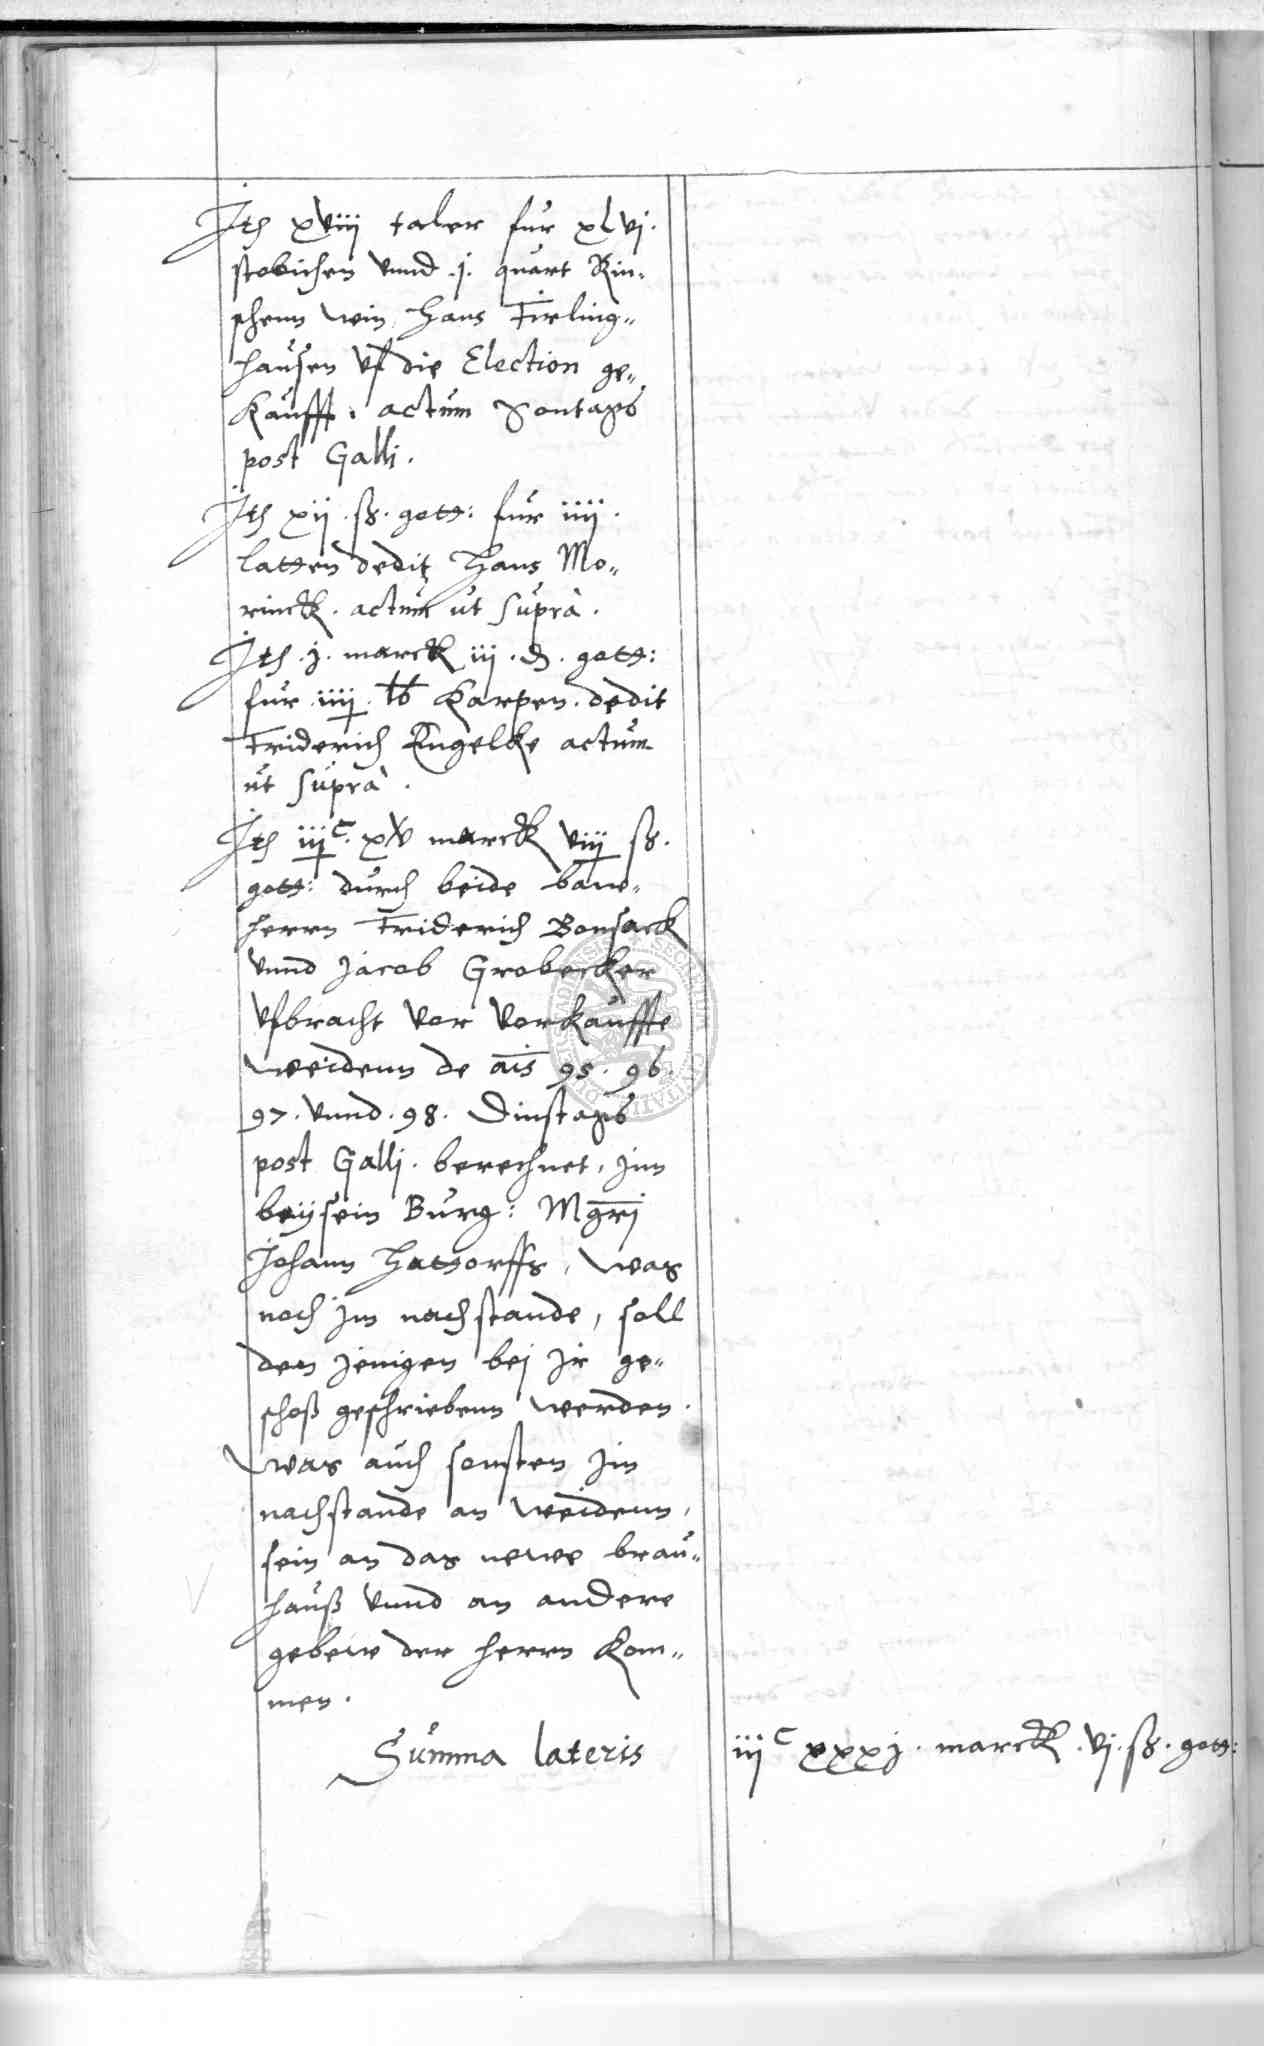 Jtem xviij taler fur xlvj.
stobichen vnnd .j. quart Rin-
schenn win, Hans Firling-
hausen vf die Election ge-
kaufft: actum Sontags
post Galli.
Jtem xij. ß. gott: fur iiij.
latten dedit Hans Mo-
rinck. actum ut supra.
Jtem .j. marck iij. d. gott:
fur iiij. lb Karpen. dedit
Friderich Engelke actum
ut supra.
Jtem iij c. xv marck viij ß.
gott: durch beide baw-
herrn Friderich Bonsack
vnnd Jacob Grobecker
vfbracht vor vorkauffte
weidenn de ais 95. 96.
97. vnnd. 98. Dinstags
post Galli. berechnet, jnn
beijsein Burg: Mgrj
Johann Hattorffs, was
noch jm nachstande, soll
den jenigen bej jr ge-
schoß geschriebenn werden.
was auch sonsten jm
nachstande an weidenn,
sein an das newe brau-
hauß vnnd an andere
gebew der herrn kom-
men.
Summa lateris iij c xxxj. marck. vj. ß. gott:
SECRETUM CIVITATIS